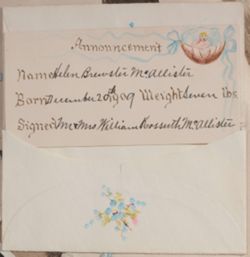 Announcement
Name Helen Brewster McAllister
Born December 20th 1909 Weight Seven lbs.
Signed Mr & Mrs William Kossuth McAllister